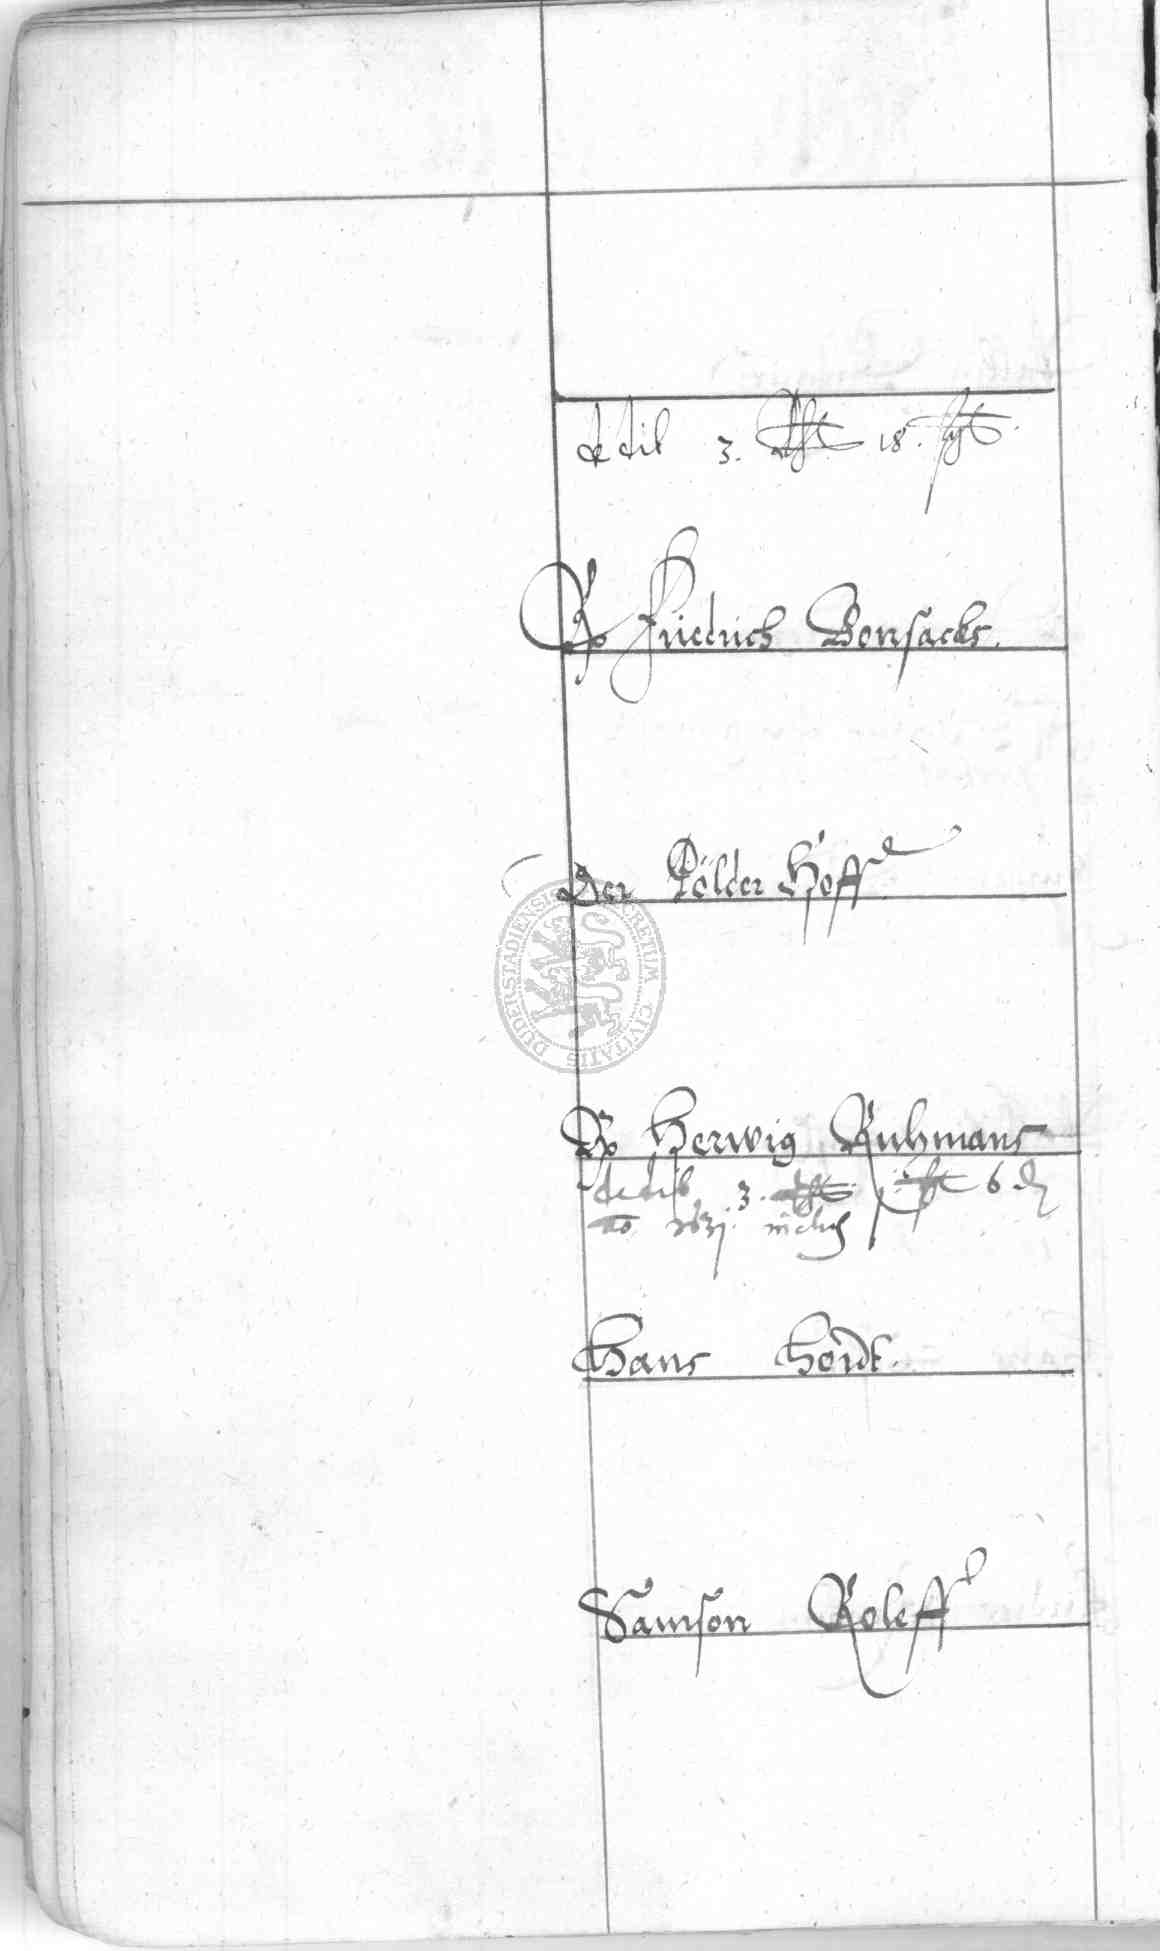 dedit 3. 18.
Friedrich Bonsacks.
Der Pölder Hoff
DUDERSTADIENSIS SECRETUM CIVITATIS
Herwig Ruhmans
dedit 3. 6
ao 1631.
Hans Heidt.
Samson Roleff